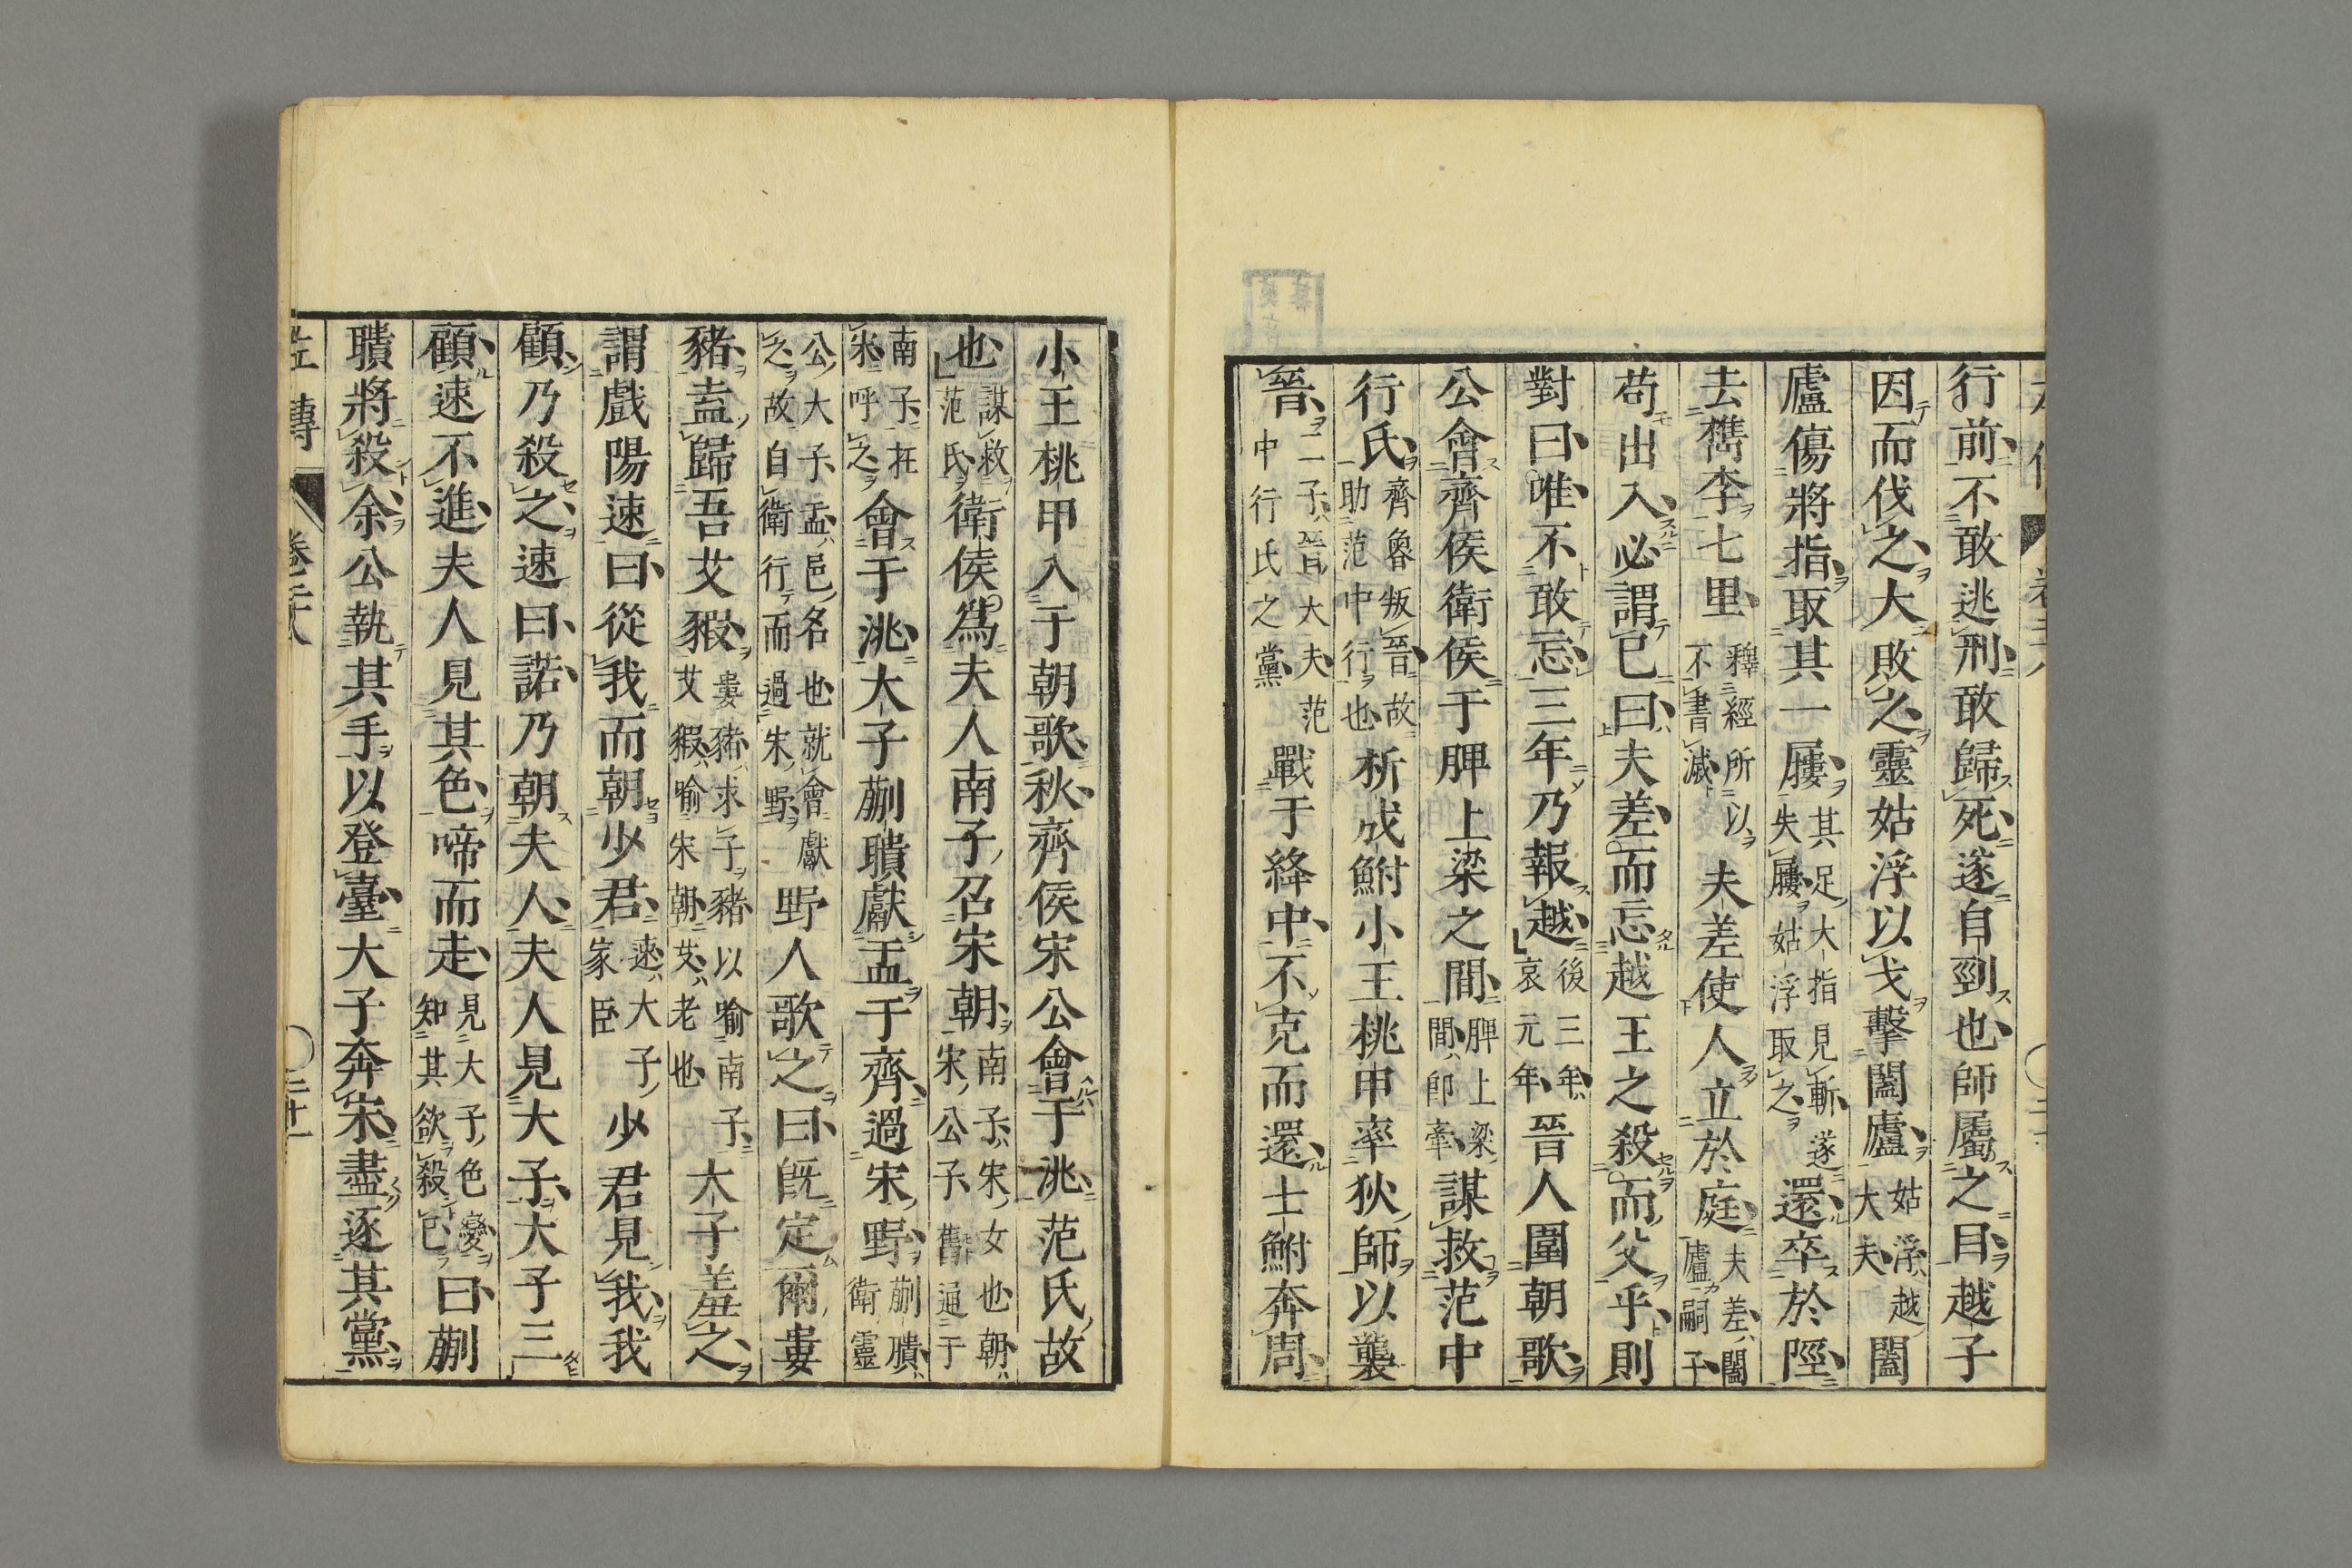 行前不敢逃刑敢歸死遂自剄也師屬之目越子
因而伐之大敗之靈姑浮以戈擊闔廬姑浮越大夫闔
廬傷將指取其一屨其足大指見斬遂失屨姑浮取之還卒於陘
去檇李七里釋經所以不書滅夫差使人立於庭夫差闔廬嗣子
苟出入必謂已曰夫差而忘越王之殺而父乎則
對曰唯不敢忘三年乃報越後三年哀元年晉人圍朝歌
公會齊侯衛侯于脾上梁之間脾上梁間即牽謀救范中
行氏齊魯叛晉故助范中行也析成鮒小王桃甲率狄師以襲
晉二子晉大夫范中行氏之黨戰于絳中不克而還士鮒奔周
小王桃甲入于朝歌秋齊侯宋公會于洮范氏故
也謀救范氏衛侯爲夫人南子召宋朝南子宋女也朝宋公子舊通于
南子在宋呼之會于洮大子蒯聵獻盂于齊過宋野蒯聵衛靈
公大子盂邑名也就會獻之故自衛行而過宋野野人歌之曰既定爾婁
豬盍歸吾艾豭婁豬求子豬以喻南子艾豭喻宋朝艾老也大子羞之
謂戲陽速曰從我而朝少君速大子家臣少君見我我
顧乃殺之速曰諾乃朝夫人夫人見大子大子三
顧速不進夫人見其色啼而走見大子色變知其欲殺已曰蒯
聵將殺余公執其手以登臺大子奔宋盡逐其黨
左傳 卷二十八 二十一